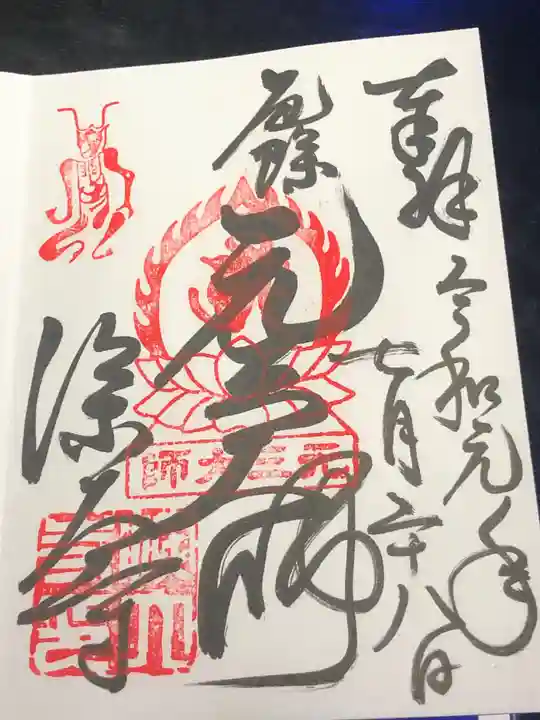 奉拝
令和元年
七月二十八日
厄除
元三大師
深大寺
元三大師